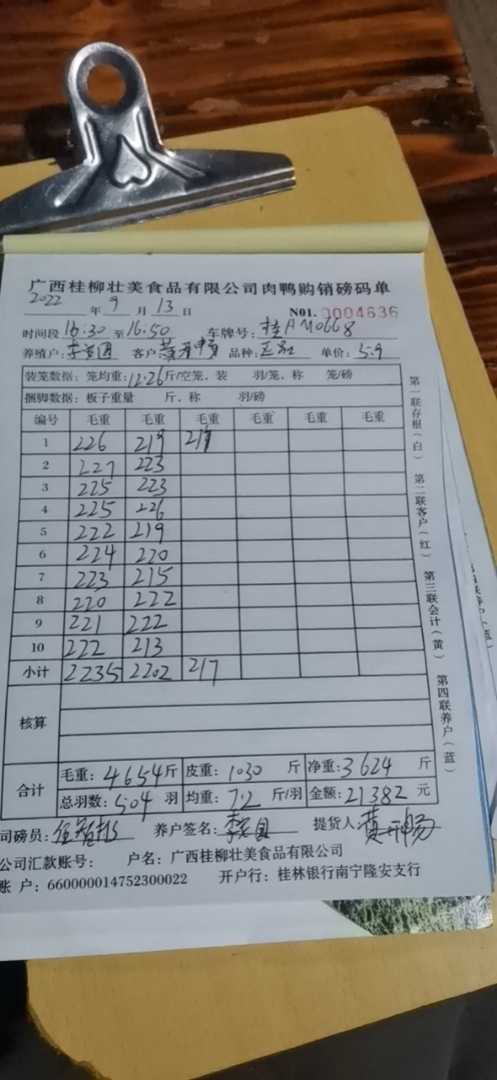 广西桂柳壮美食品有限公司肉鸭购销磅码单
2022年9月13日 N01.0004636
时间段16.30至16.50 车牌号:桂AM0668
养殖户: 客户 品种: 单价:5.9
装笼数据:笼均重:12.26斤/空笼、装 羽/笼、称 笼/磅
捆脚数据:板子重量 斤、称 羽/磅
编号 毛重 毛重 毛重 毛重 毛重 毛重
1 226 219 217
2 227 223
3 225 223
4 225 226
5 222 219
6 224 220
7 223 215
8 220 222
9 221 222
10 222 213
小计 2235 2202 217
核算
合计 毛重:4654斤 皮重:1030斤 净重:3624斤
总羽数:504羽 均重:7.2斤/羽 金额:21382元
司磅员: 养户签名: 提货人
公司汇款账号: 户名:广西桂柳壮美食品有限公司
账户:660000014752300022 开户行:桂林银行南宁隆安支行
第一联存根(白) 第二联客户(红) 第三联会计(黄) 第四联养户(蓝)